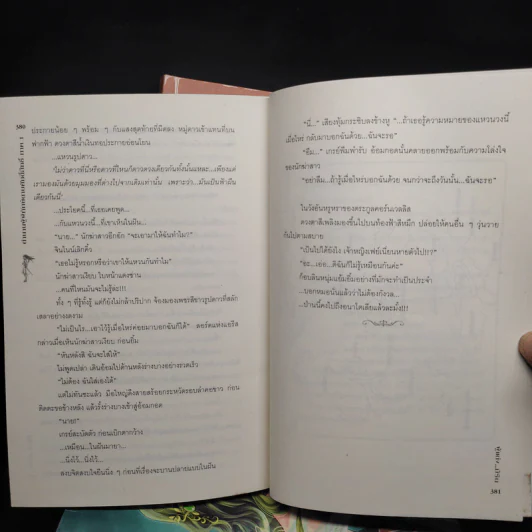 380
ประกายน้อย ๆ พร้อม ๆ กับแสงสุดท้ายที่มืดลง หมู่ดาวเข้าแทนที่บน
ฟากฟ้า ดวงตาสีน้ำเงินทอประกายอ่อนโยน
...แหวนรูปดาว...
ไม่ว่าดาวที่นี่หรือดาวที่ไหนก็ดาวดวงเดียวกันทั้งนั้นแหละ...เพียงแต่
เรามองมันด้วยมุมมองที่ต่างไปจากเดิมเท่านั้น เพราะว่า...มันเป็นฟ้าผืน
เดียวกันนี่'
...ประโยคนี้...ที่เธอเคยพูด...
...กับแหวนวงนี้...ที่เขาเห็นในฝัน...
"นาย..." นักฆ่าสาวอึกอัก "จะเอามาให้ฉันทำไม?"
จินในนั้เลิกคิ้ว
"เธอไม่รู้หรอกหรือว่าเขาให้แหวนกันทำไม"
นักฆ่าสาวเงียบ ใบหน้าแดงซ่าน
...คนที่ไหนมันจะไม่รู้ละ!!!
ทั้ง ๆ ที่รู้ทั้งรู้ แต่ก็ยังไม่กล้าปริปาก จ้องมองเพชรสีขาวรูปดาวที่สลัก
เสลาอย่างงดงาม
"ไม่เป็นไร...เอาไว้รู้เมื่อไหร่ค่อยมาบอกฉันก็ได้" ลอร์ดแห่งแอริส
กล่าวเมื่อเห็นนักฆ่าสาวเงียบ ก่อนยิ้ม
"หันหลังสิ ฉันจะใส่ให้"
ไม่พูดเปล่า เดินอ้อมไปด้านหลังร่างบางอย่างรวดเร็ว
"ไม่ต้อง ฉันใส่เองได้"
แต่ไม่ทันซะแล้ว มือใหญ่ดึงสายสร้อยกระหวัดรอบลำคอขาว ก่อน
ติดตะขอข้างหลัง แล้วรั้งร่างบางเข้าสู่อ้อมกอด
"นาย!"
เกรย์สะบัดตัว ก่อนเบิกตากว้าง
...เหมือน...ในฝันมายา...
...นิ่งไว้...นิ่งไว้...
สงบจิตสงบใจยืนนิ่ง ๆ ก่อนที่เรื่องจะบานปลายแบบในฝัน
"นี่..." เสียงทุ้มกระซิบลงข้างหู "...ถ้าเธอรู้ความหมายของแหวนวงนี้
เมื่อไหร่ กลับมาบอกฉันด้วย...ฉันจะรอ"
"อืม..." เกรย์พึมพำรับ อ้อมกอดนั้นคลายออกพร้อมกับความโล่งใจ
ของนักฆ่าสาว
"อย่าลืม...ถ้ารู้เมื่อไหร่บอกฉันด้วย จนกว่าจะถึงวันนั้น...ฉันจะรอ"
ในวังอันหรูหราของตระกูลคอร์นเวลลิส
ดวงตาสีเพลิงมองขึ้นไปบนท้องฟ้าสีหมึก ปล่อยให้คนอื่น ๆ วุ่นวาย
กันไปตามสบาย
"เป็นไปได้ยังไง เจ้าหญิงเฟย์เนียนหายตัวไป!?"
"ชะ...เออ...ดิฉันก็ไม่รู้เหมือนกันค่ะ"
ก็อบลินหนุ่มแย้มยิ้มอย่างที่มักจะทำเป็นประจำ
...บอกหมอนั่นแล้วว่าไม่ต้องกังวล...
...ป่านนี้คงไปถึงอนาโตเลียแล้วละมั้ง!!!
381